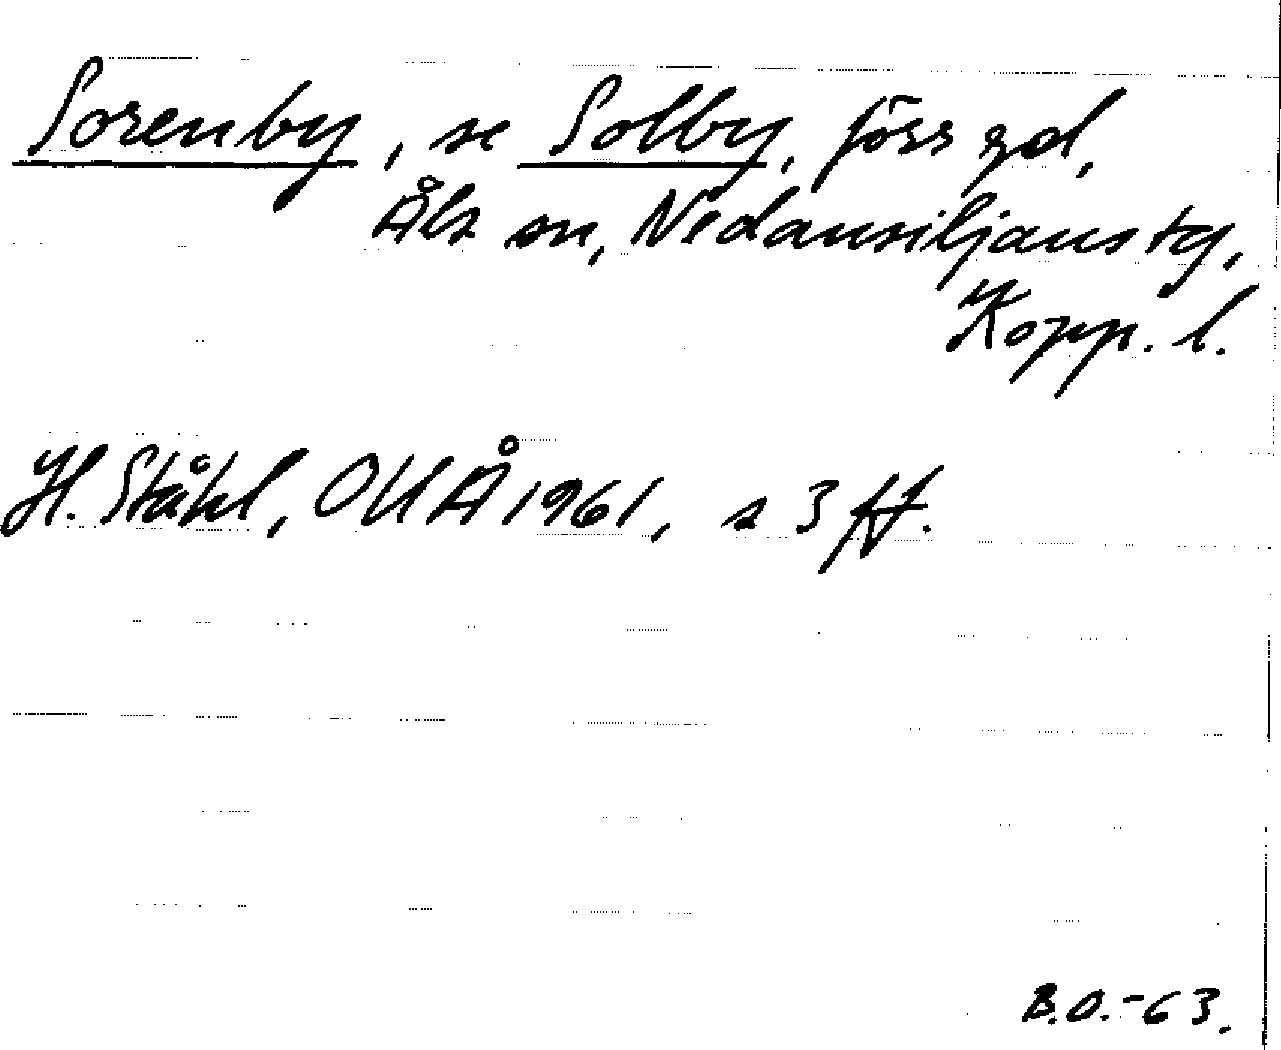 Sorenby, se Solby, försv gd,
Åls sn, Nedansiljans tg,
Kopp. l.
H. Ståhl, OUÅ 1961, s 3 ff.
B.O.-63.